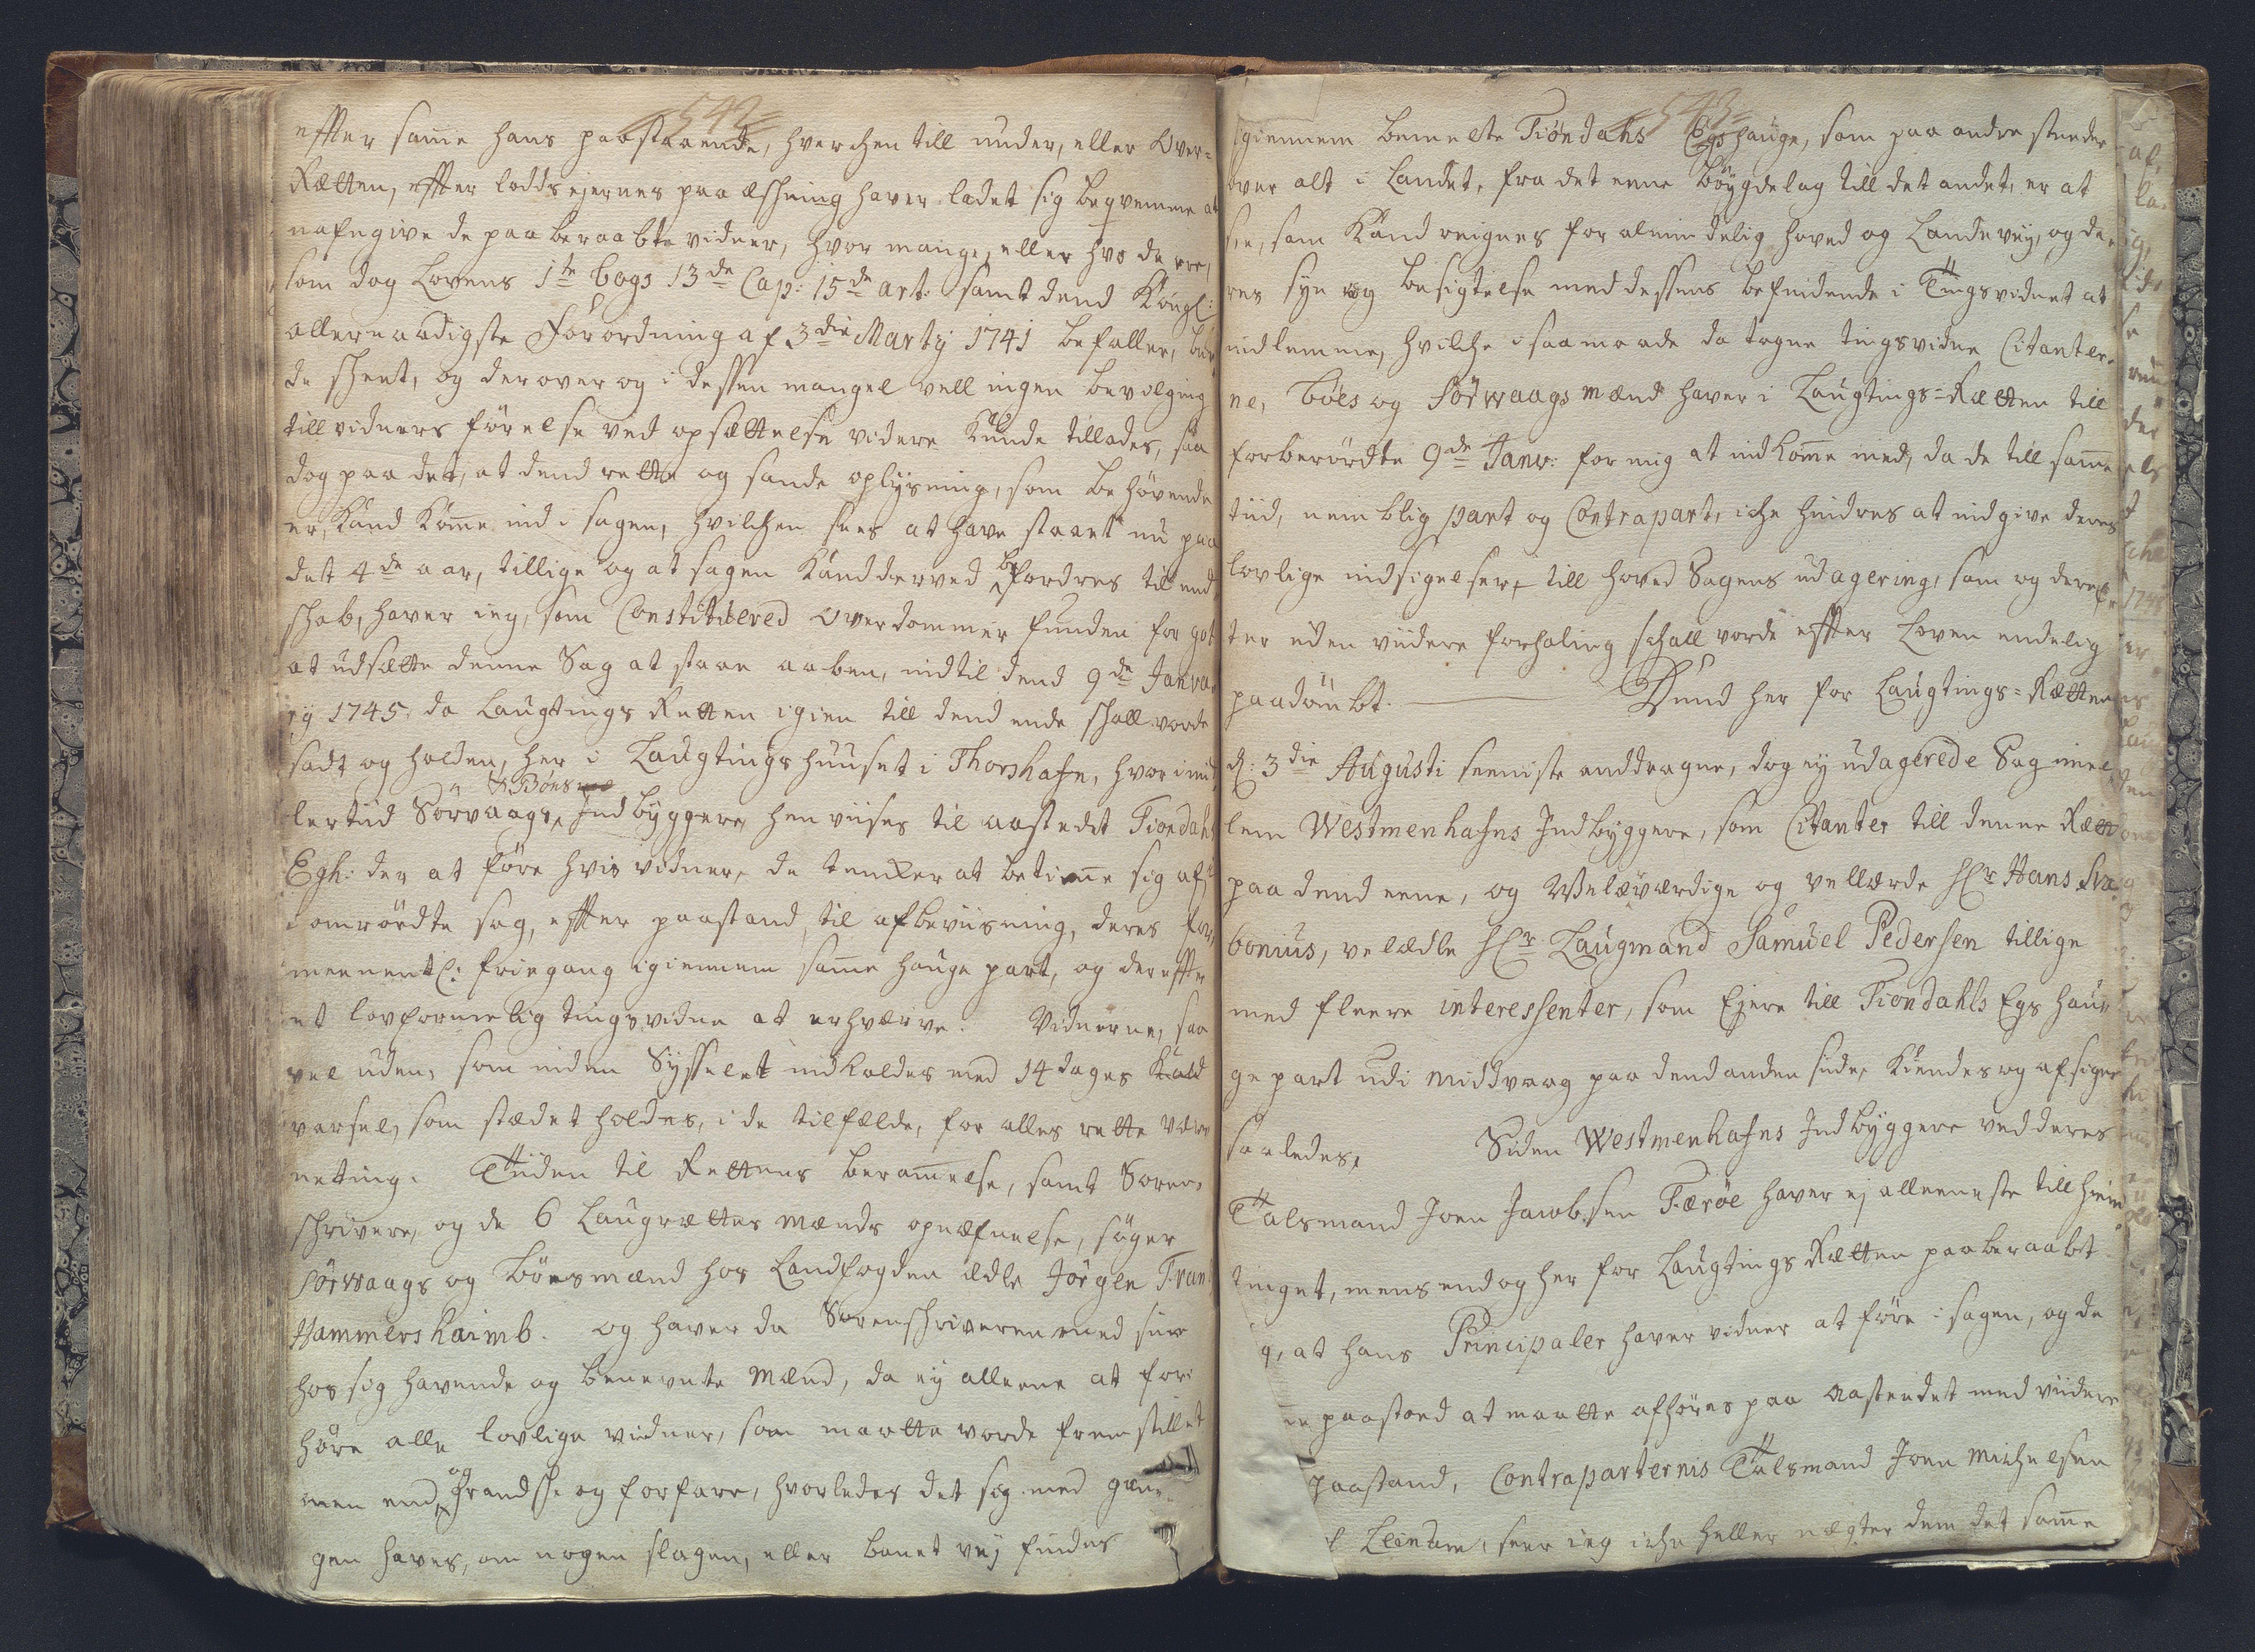 542
effter samme hans paastaaende, hverchen till under, eller Over=
Rætten, effter lodds ejernes paa æskning haver ladet sig beqvemme at
nafngive de paaberaabte vidner, hvor mange, eller hvo de ere,
som dog Lovens 1te bogs 13de Cap: 15de art: samt dend Kongl:
allernaadigste Forordning af 3die Marty 1741 befaller, bur=
de skeet, og derover og i dessen mangel vell ingen bevilging
till vidners førelse ved opsættelse videre Kunde tillades, saa
dog paa det, at dend rette og sande oplysning, som behøvende
er, Kand komme ind i sagen, hvilchen sees at have staaet nu paa
det 4de aar, tillige og at sagen Kand derved befordres til end
skab, haver ieg, som Constituered Overdommer funden for got
at udsætte denne Sag at staae aaben, indtil dend 9de Janva
ry 1745, da Laugtings Retten igien till dend ende skall vorde
sadt og holden, her i Laugtingshuuset i Thorshafn, hvor imid=
& Bøns
lertiid Sørvaags Indbyggere, hen viises til aastedet Tiondahls
Egh: der at føre hvis vidner, de tencker at betiene sig af,
i omrørdte sag, effter paastand, til afbeviisning, deres for=
meenentl: friegang igiennem samme hauge part, og dereffter
et lovformelig tingsvidne at erhværve. Vidnerne, saa
vel uden, som inden Sysselet indkaldes med 14 dages Kald
varsel, som stædet holdes, i de tilfælde, for alles rette Vær=
neting. Tiiden til Rettens berammelse, samt Soren=
skrivere, og de 6 Laugrættes mænds opnæfnelse, søger
Sørwaags og Bøes mænd hos Landfogden ædle Jørgen Fran
Hammershaimb. og haver da Sorenskriveren med sine
hos sig havende og benevnte Mænd, da ey alleene at for=
høre alle lovlige vidner, som maatte vorde fremstillet
men end og Grandske og forfare, hvorledes det sig med gien=
gen haves, om nogen slagen, eller banet vej findes
543
igiennem bemeldte Tiøndahs Egs hauge, som paa andre steeder
over alt i Landet, fra det eene bøygdelag till det andet, er at
see, som Kand reignes for almindelig hoved og Landevej, og de=
res syn og besigtelse med dessens befindende i Tingsvidnet at
indlemme, hvilche i saa maade da tagne tingsvidne Citanter=
ne, bøes og Sørwaags mænd haver i Laugtings=Rætten till
forberørdte 9de Janv: for mig at indkomme med, da de till samme
tiid, nemblig part og Contrapart, iche hindres at indgive deres
lovlige indsigelser, till hoved Sagens udagering, som og deref=
ter uden viidere forhaling schall vorde effter Loven endelig
paadømbt. Dend her for Laugtings=Rætten
d: 3die Augusti seeniste anddragne, dog ej udagerede Sag imel=
lem Westmenhafns Indbyggere, som Citanter till denne Rætt
paa dend eene, og Welærværdige og vellærde Hr Hans Sva=
bonius, velædle Hr Laugmand Samuel Pedersen tillige
med fleere interessenter, som Ejere till Tiondahls Egs hau=
ge part udi Middvaag paa dend anden siide, Kiendes og afsiges
saaledes, Siden Westmenhafns Indbyggere ved deres
Talsmand Joen Jacobsen Færøe haver ej alleeneste till hiem
tinget, mens end og her for Laugtings Rætten paaberaabt
at hans Principaler haver vidner at føre i sagen, og de
paastaed at maatte afhøres paa Aasteedet med viidere
paastand, Contraparternis Talsmand Joen Michelsen
Leinum, seer ieg iche heller nægter dem det samme